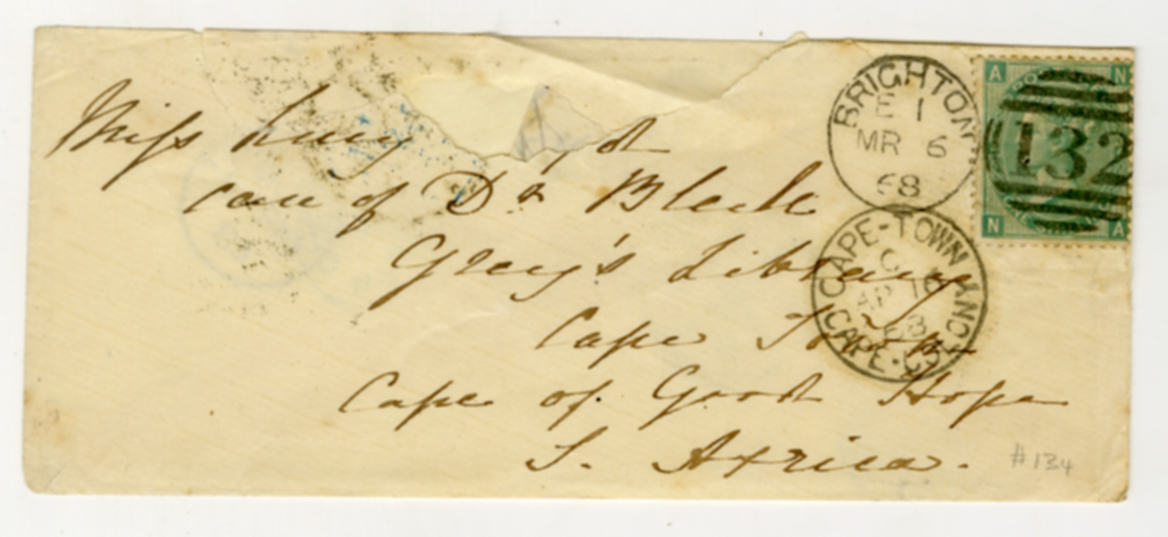 Miss Lucy
care of Dr. Bleek
Grey's Library
Cape Town
Cape of Good Hope
S. Africa.
#134
BRIGHTON
E 1
MR 6
68
A N
132
N A
CAPE-TOWN
AP 16
68
CAPE·COL